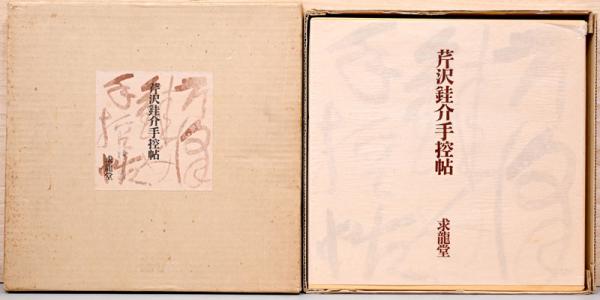 芹沢銈介手控帖
求龍堂
芹沢銈介手控帖
求龍堂